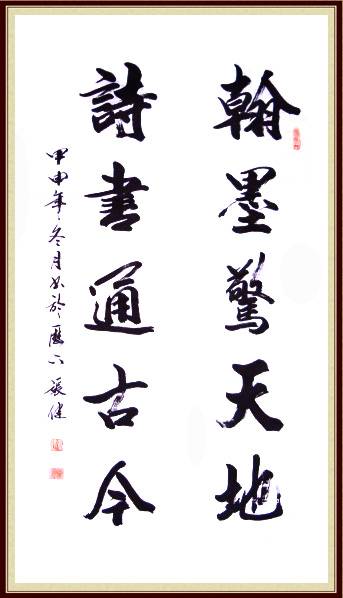 翰墨驚天地
詩書通古今
甲申年冬月書於廈门張健